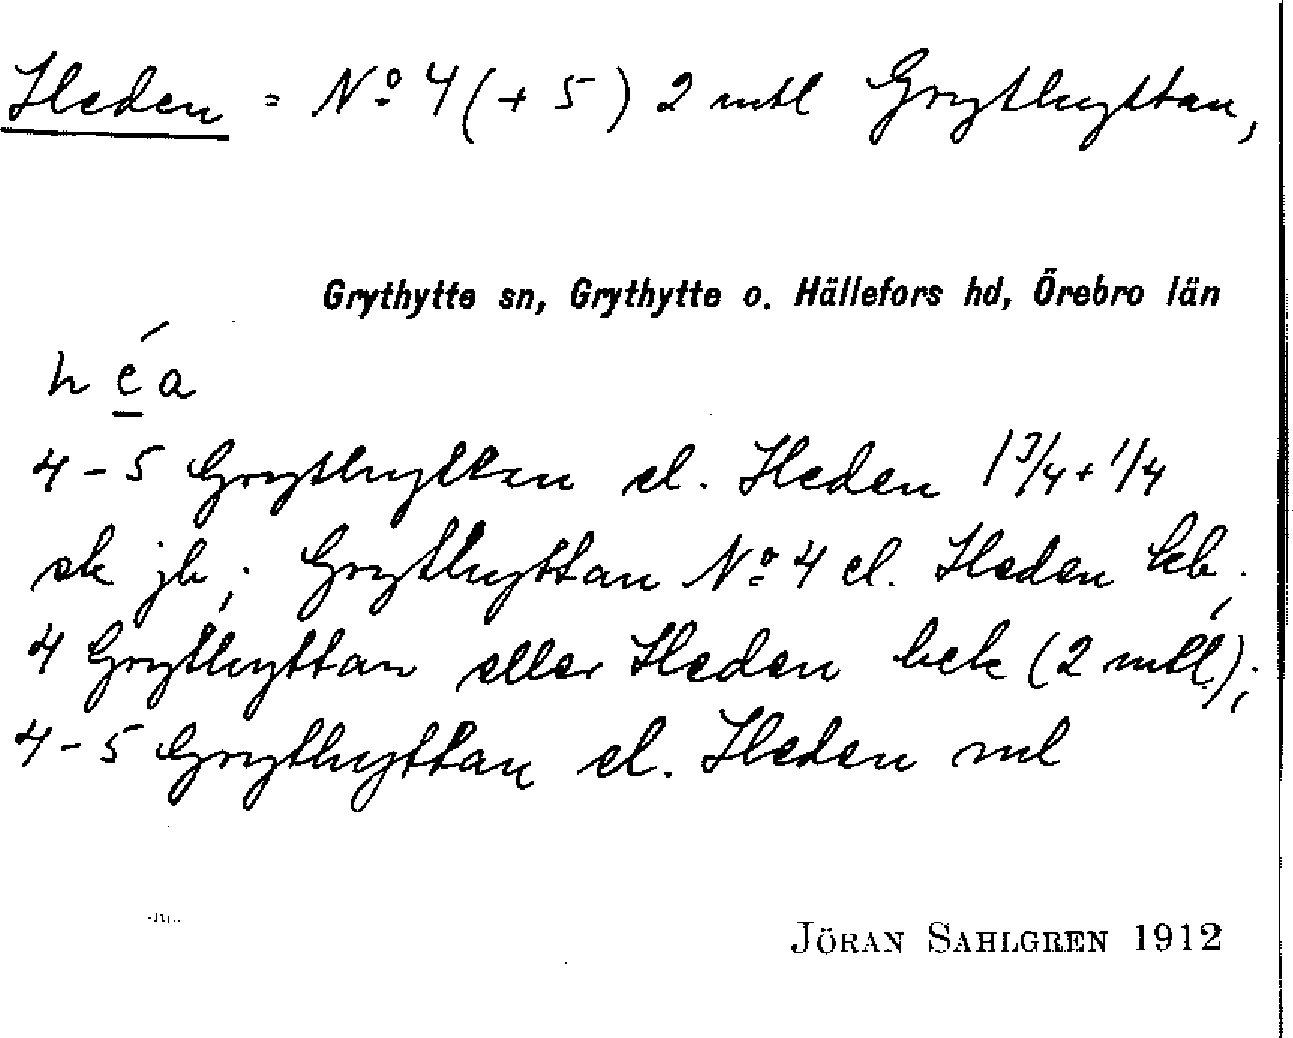 Heden = Nº 4 (+ 5) 2 mtl Grythyttan,
Grythytte sn, Grythytte o. Hällefors hd, Örebro län
h é a
4-5 Grythyttan el. Heden 1 3/4 + 1/4
sk jb; Grythyttan Nº 4 el. Heden
4 Grythyttan eller Heden (2 mtl);
4-5 Grythyttan el. Heden ml
JÖRAN SAHLGREN 1912